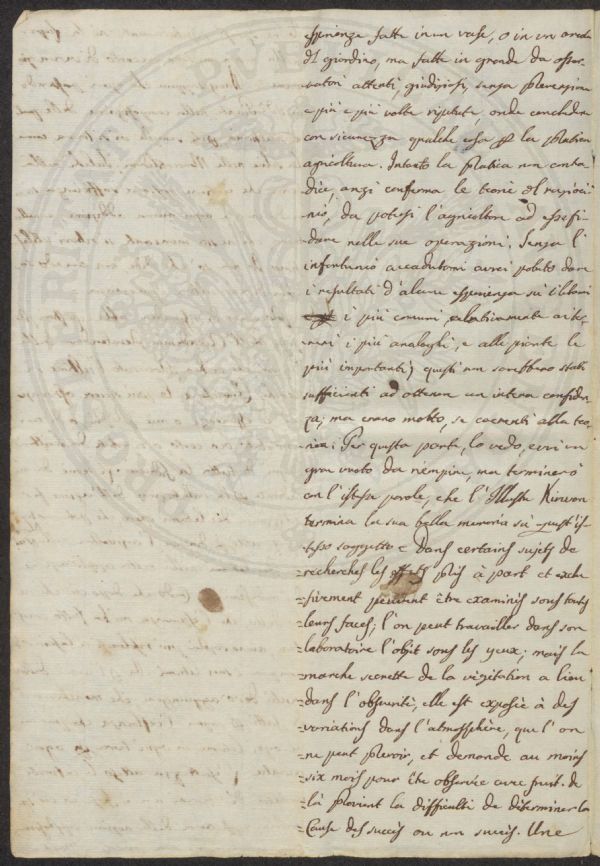 esperienze fatte in un vaso, o in un areola
del giardino, ma fatte in grande da osser-
vatori attenti, giudiziosi, senza prevenzione
e più e più volte ripetute, onde concludere
con sicurezza qualche cosa per la pratica
agricoltura. Intanto la pratica non contra
dice, anzi conferma le teorie del razioci-
nio, da potersi l'agricoltore ad esse fi-
dare nelle sue operazioni. Senza l'
infortunio accadutomi avrei potuto dare
i resultati d'alcune esperienze su i litami
i più comuni, relativamente ai ter-
reni i più analoghi, e alle piante le
più importanti; questi non sarebbero stati
sufficienti ad ottenere un intera confiden-
za; ma erano molto, se coerenti alla teo-
ria: Per questa parte, lo vedo, evvi un
gran vuoto da riempire, ma terminerò
con l'istesse parole, che l'Illustre Kirwan
termina la sua bella memoria su quest'is-
tesso soggetto « Dans certains sujets de
recherches les effets pris à part et exclu
sivement peuvent être examinés sous toutes
leurs faces; l'on peut travailler dans son
laboratoire l'objet sous les yeux; mais la
marche secrette de la végétation a lieu
dans l'obscurité, elle est exposée à des
variations dans l'atmosphère, que l'on
ne peut prevoir, et demande au moins
six mois pour être observée avec fruit. de
là provient la difficulté de déterminer la
Cause des succès ou non succès. Une